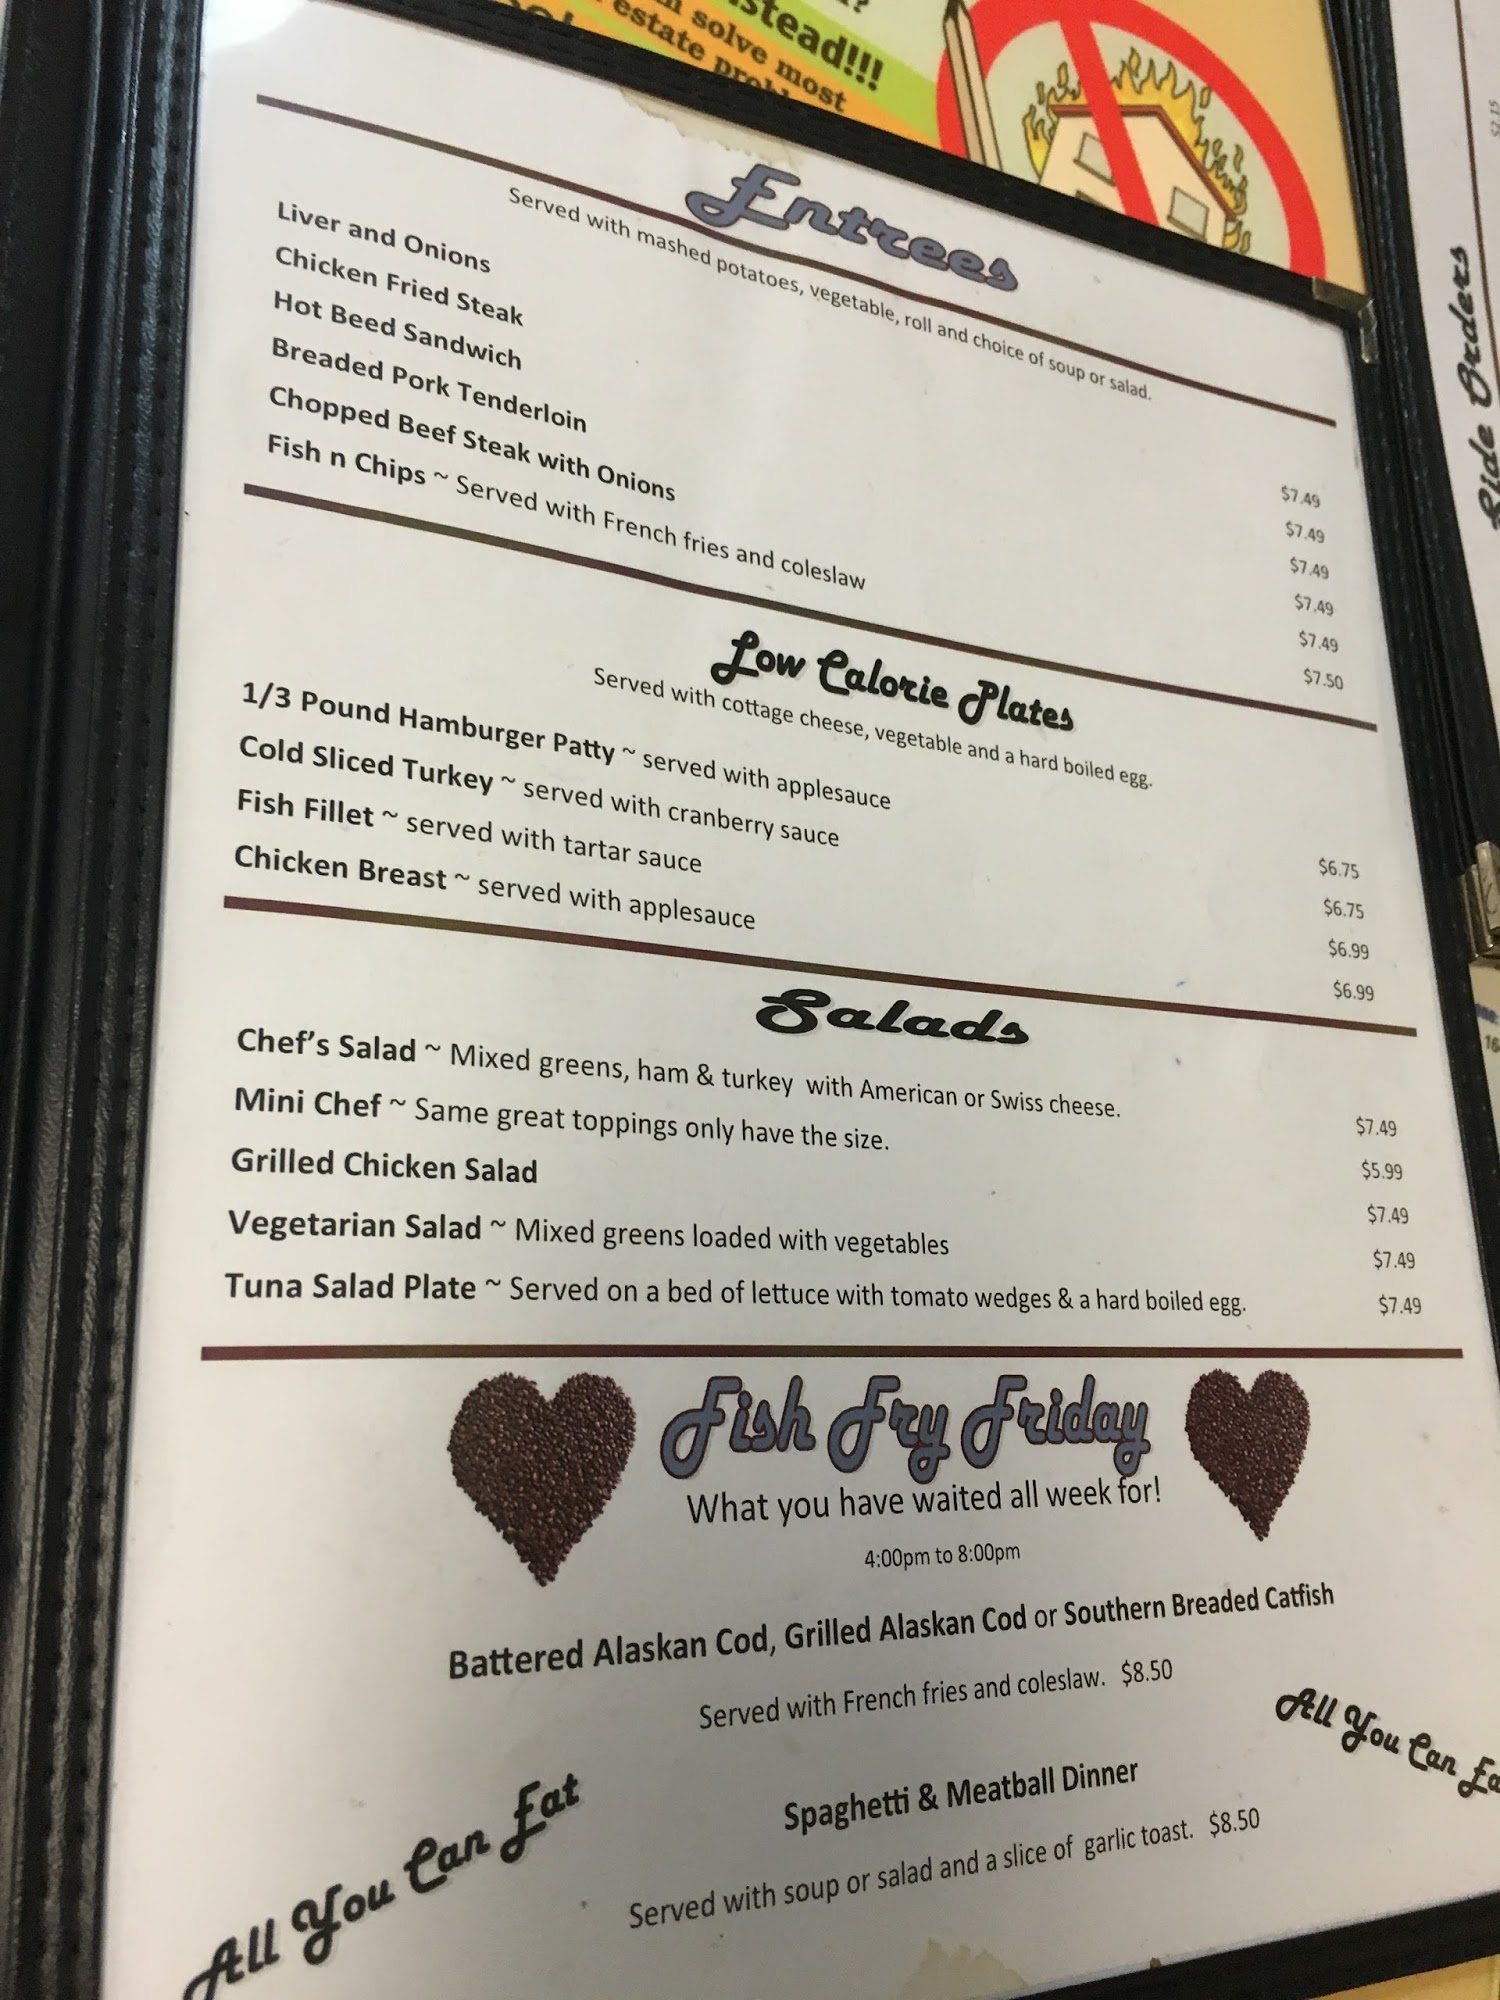 stead!!!
solve most
estate
Entrees
Served with mashed potatoes, vegetable, roll and choice of soup or salad.
Liver and Onions $7.49
Chicken Fried Steak $7.49
Hot Beed Sandwich $7.49
Breaded Pork Tenderloin $7.49
Chopped Beef Steak with Onions $7.49
Fish n Chips ~ Served with French fries and coleslaw $7.50
Low Calorie Plates
Served with cottage cheese, vegetable and a hard boiled egg.
1/3 Pound Hamburger Patty ~ served with applesauce $6.75
Cold Sliced Turkey ~ served with cranberry sauce $6.75
Fish Fillet ~ served with tartar sauce $6.99
Chicken Breast ~ served with applesauce $6.99
Salads
Chef's Salad ~ Mixed greens, ham & turkey with American or Swiss cheese. $7.49
Mini Chef ~ Same great toppings only have the size. $5.99
Grilled Chicken Salad $7.49
Vegetarian Salad ~ Mixed greens loaded with vegetables $7.49
Tuna Salad Plate ~ Served on a bed of lettuce with tomato wedges & a hard boiled egg. $7.49
Fish Fry Friday
What you have waited all week for!
4:00pm to 8:00pm
Battered Alaskan Cod, Grilled Alaskan Cod or Southern Breaded Catfish
Served with French fries and coleslaw. $8.50
Spaghetti & Meatball Dinner
Served with soup or salad and a slice of garlic toast. $8.50
All You Can Eat
All You Can Ea
Side Orders